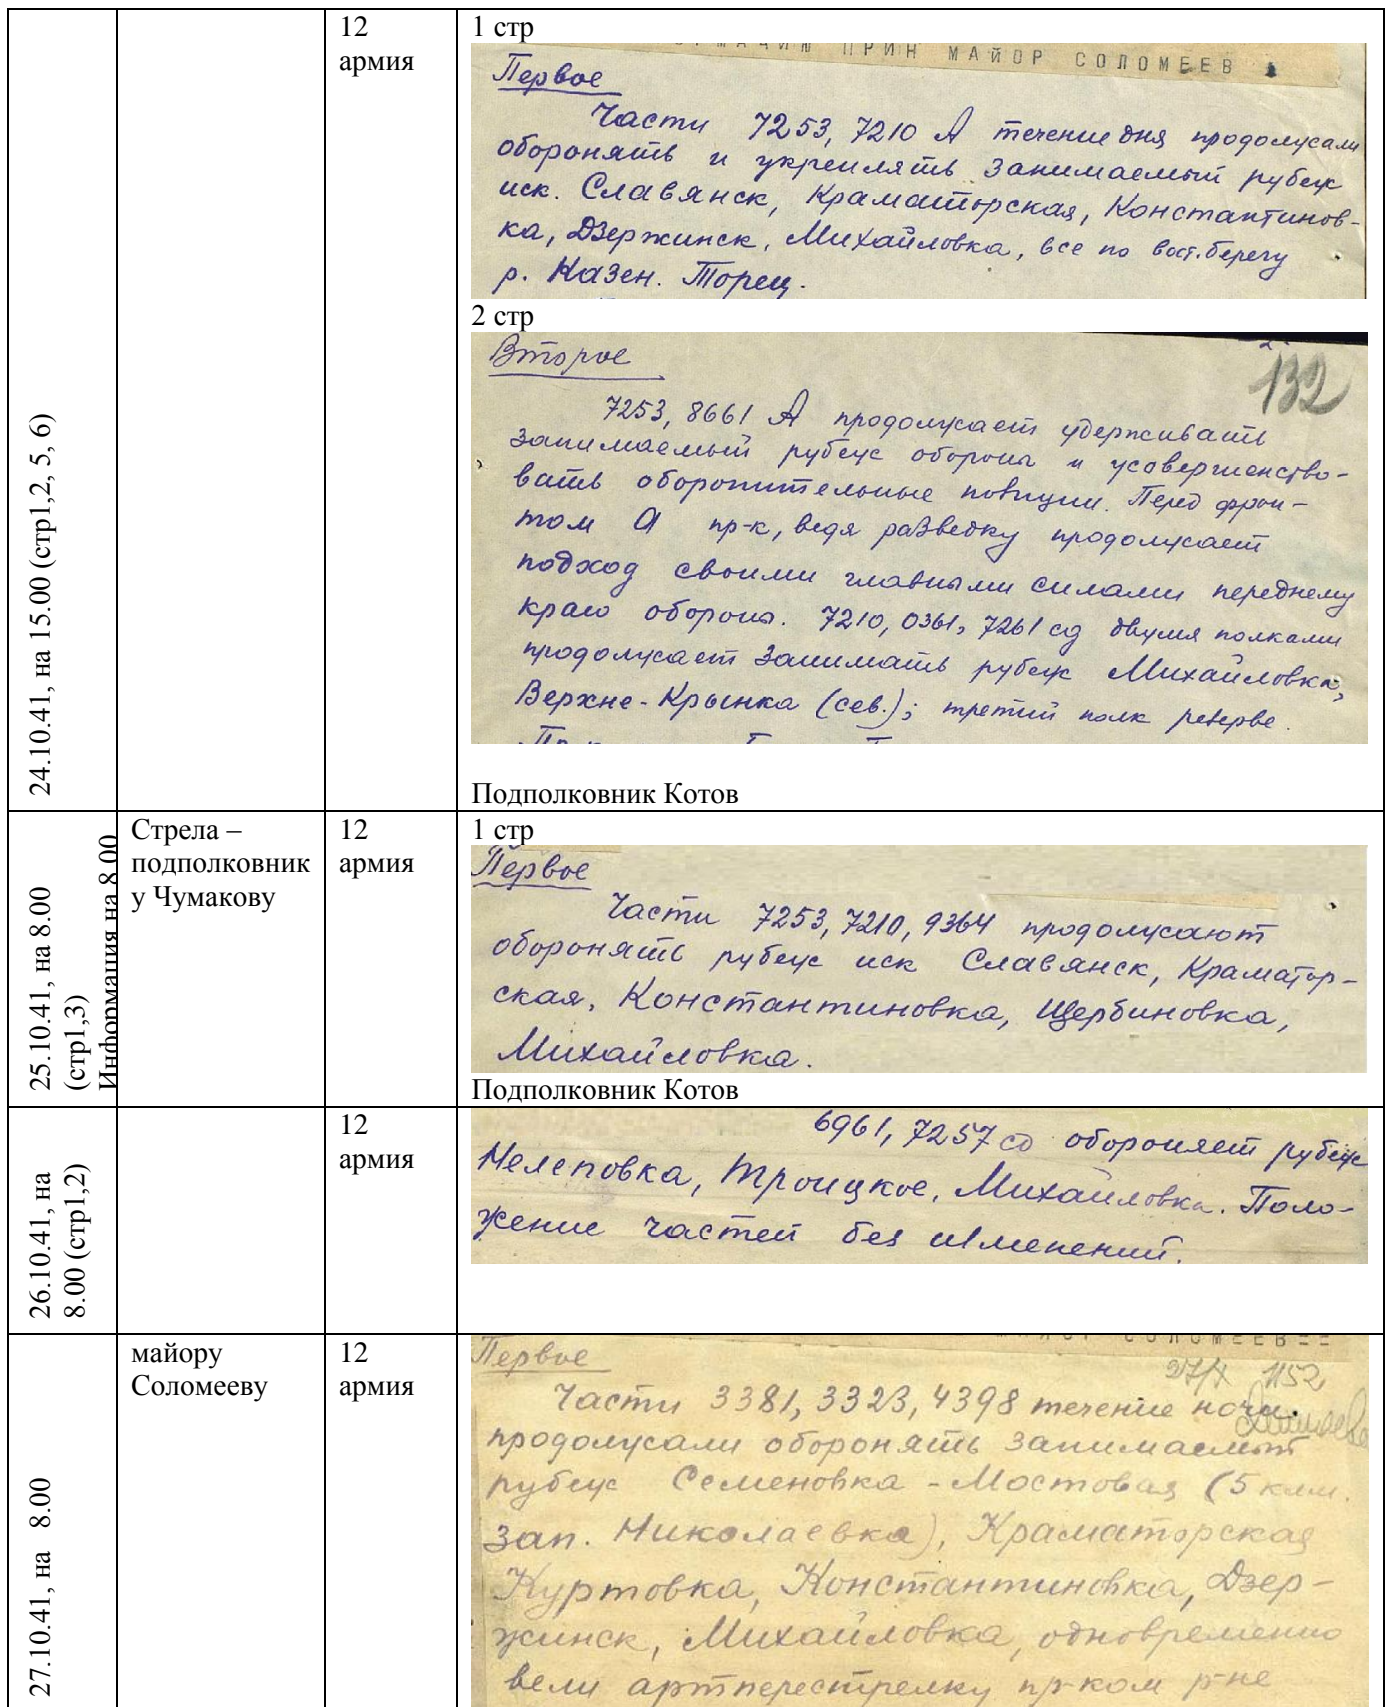 24.10.41, на 15.00 (стр1,2, 5, 6)
12
армия
1 стр
ПРИН МАЙОР СОЛОМЕЕВ
Первое
Части 7253, 7210 А течение дня продолжали
оборонять и укреплять занимаемый рубеж
иск. Славянск, Краматорская, Константинов-
ка, Дзержинск, Михайловка, все по вост. берегу
р. Казен. Торец.
2 стр
Второе
132
7253, 8661 А продолжает удерживать
занимаемый рубеж обороны и усовершенство-
вать оборонительные позиции. Перед фрон-
том А пр-к, ведя разведку продолжает
подход своими главными силами переднему
краю обороны. 7210, 0361, 7261 сд двумя полками
продолжает занимать рубеж Михайловка,
Верхне-Крынка (сев.); третий полк резерве.
Подполковник Котов
25.10.41, на 8.00
(стр1,3)
Информация на 8.00
Стрела –
подполковник
у Чумакову
12
армия
1 стр
Первое
Части 7253, 7210, 9364 продолжают
оборонять рубеж иск Славянск, Краматор-
ская, Константиновка, Щербиновка,
Михайловка.
Подполковник Котов
26.10.41, на
8.00 (стр1,2)
12
армия
6961, 7257 сд обороняет рубеж
Нелеповка, Троицкое, Михайловка. Поло-
жение частей без изменений.
27.10.41, на 8.00
майору
Соломееву
12
армия
СОЛОМЕЕВ==
Первое
27/X 1152
Части 3381, 3323, 4398 течение ночи
продолжали оборонять занимаемый
рубеж Семеновка - Мостовая (5 клм.
зап. Николаевка), Краматорская
Куртовка, Константиновка, Дзер-
жинск, Михайловка, одновременно
вели артперестрелку пр-ком р-не